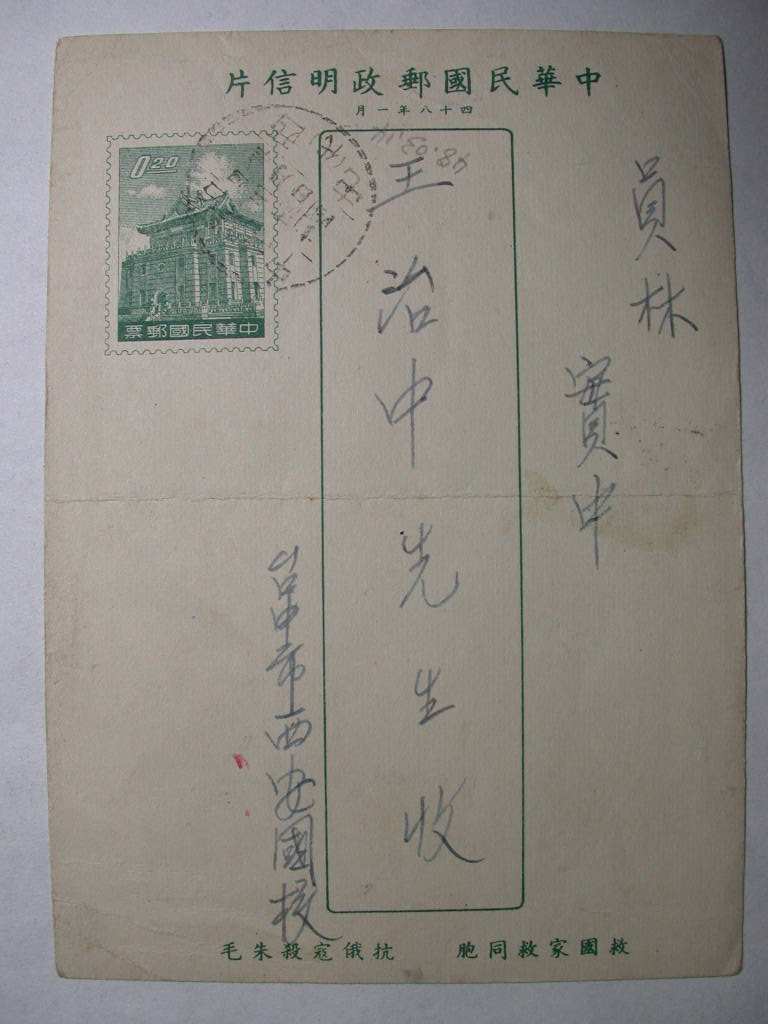 中華民國郵政明信片
四十八年一月
0.20
中華民國郵票
48.03.14
員林
實中
王治中先生收
台中市西安國校
救國家救同胞 抗俄寇殺朱毛